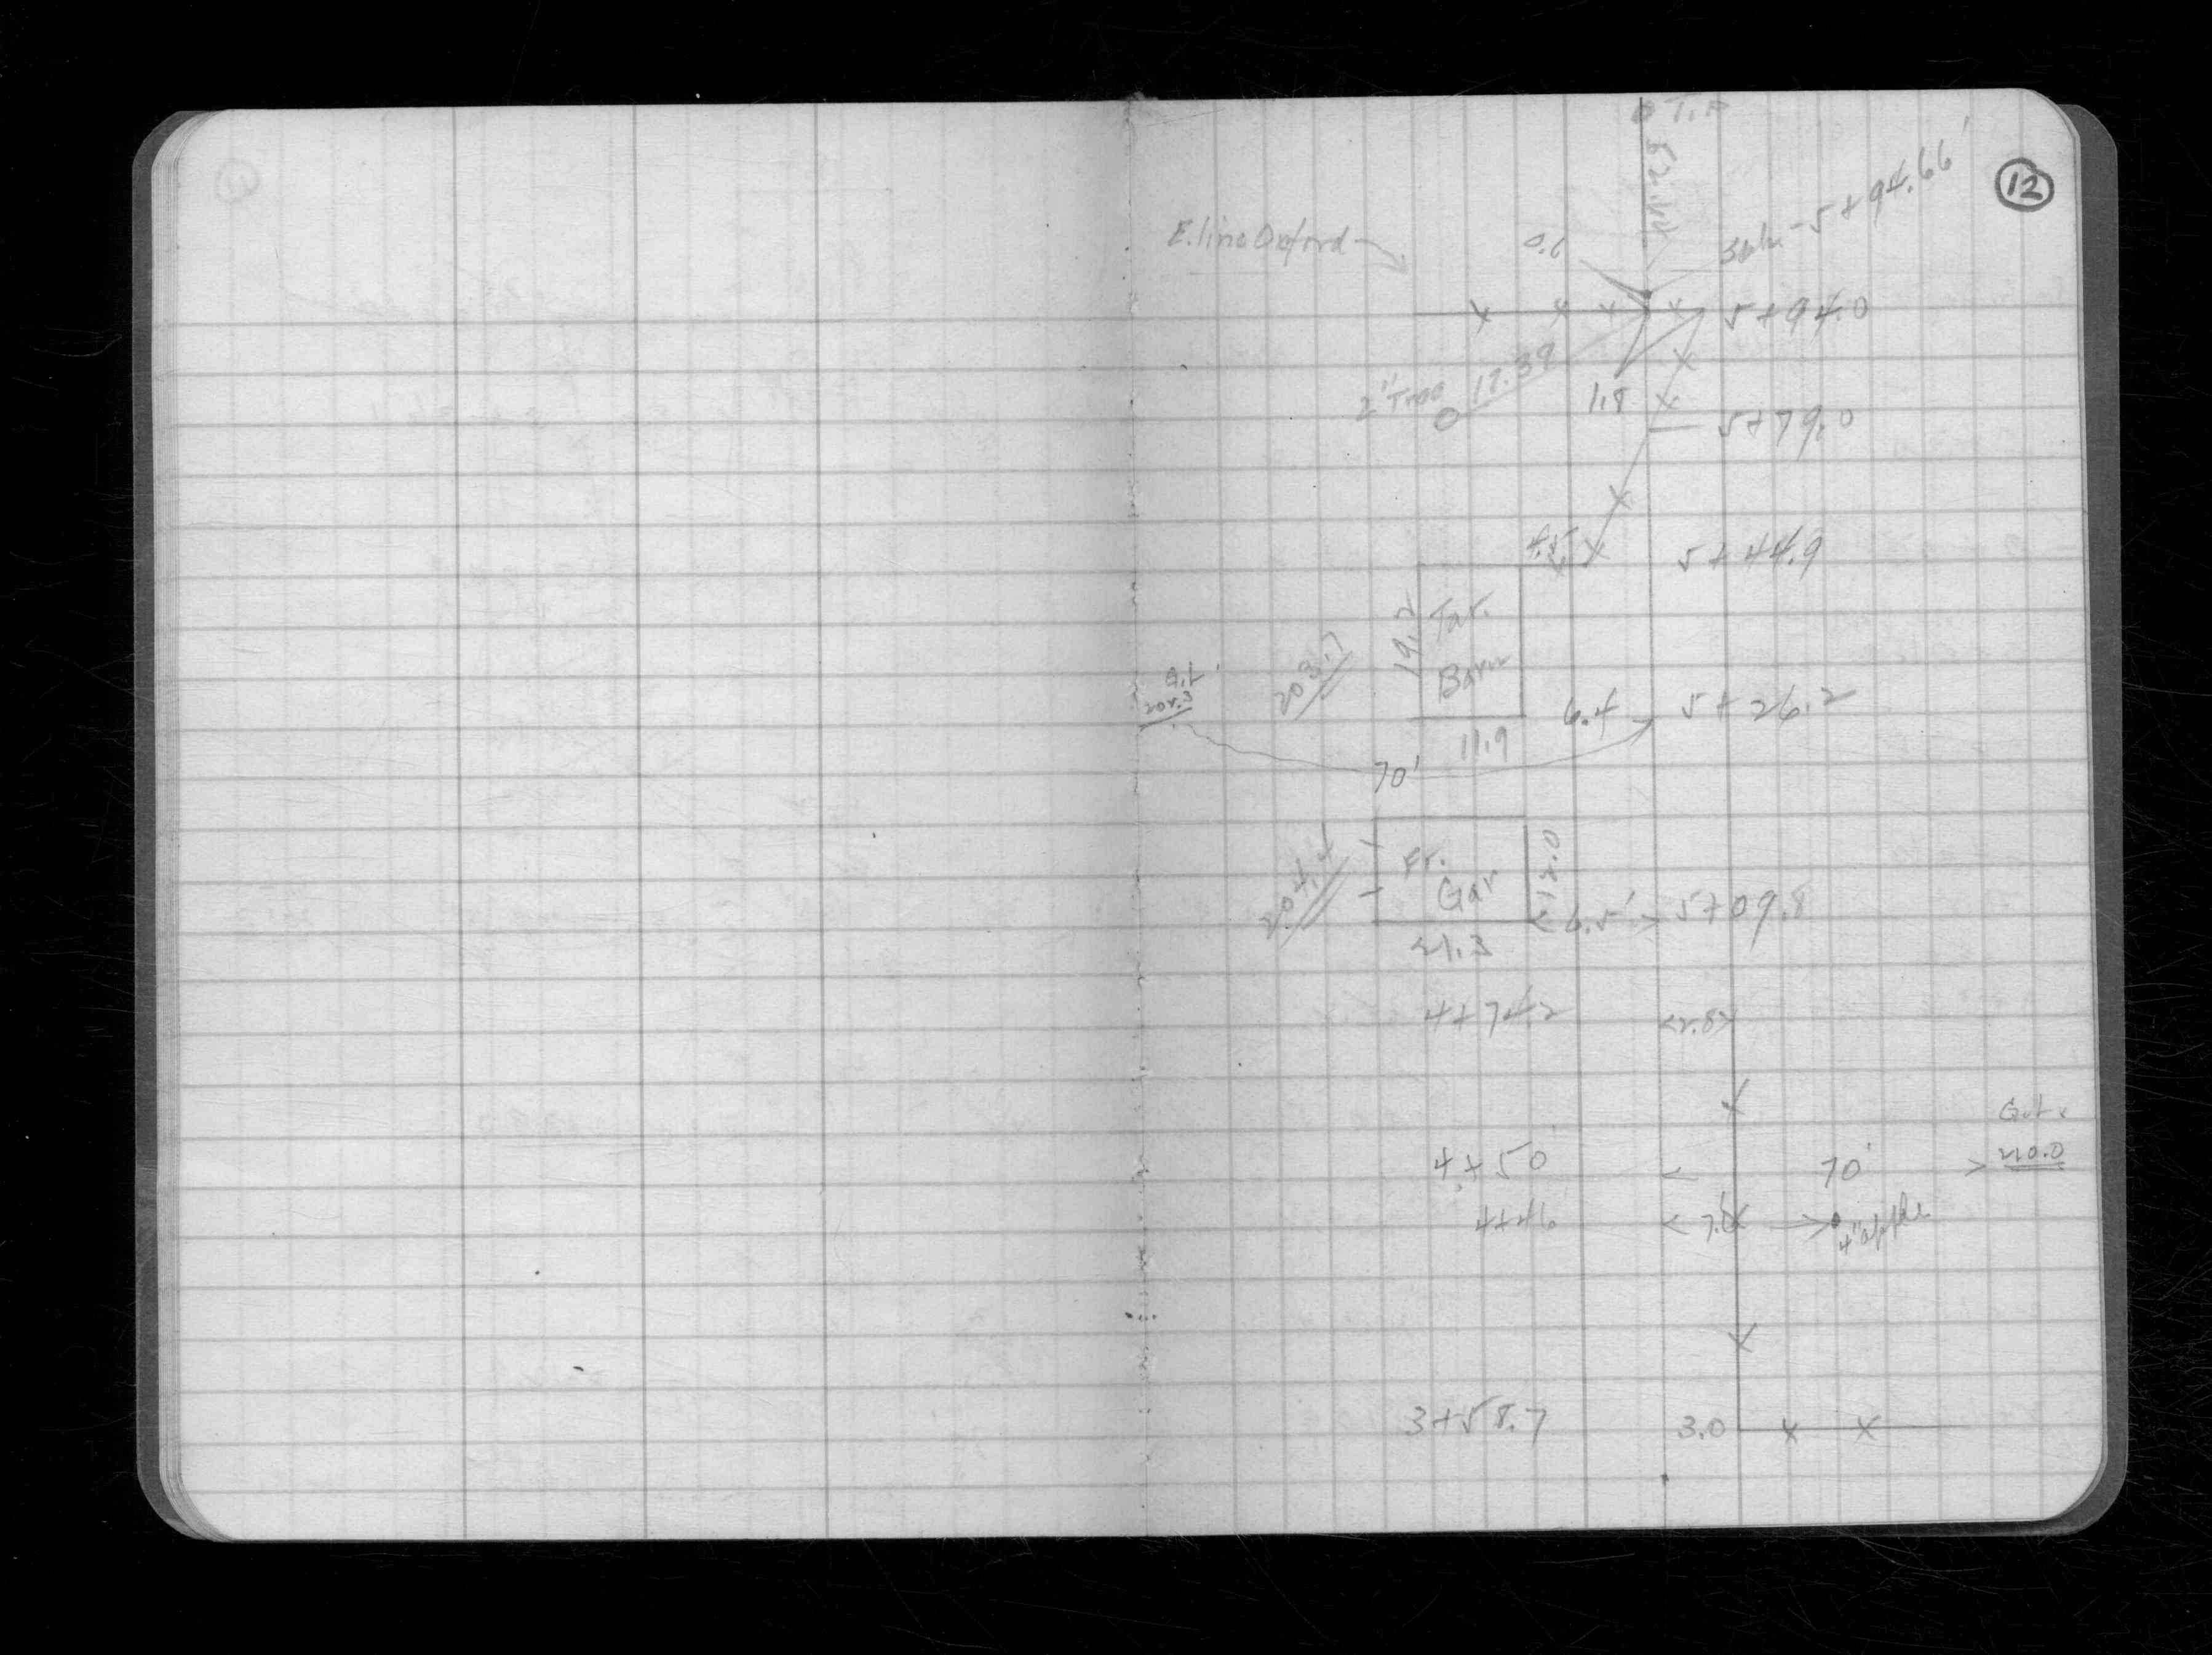 12
T.P
Stake - 5+94.66'
E. line Oxford
0.6
5+94.0
17.39
2" Tree
1.8
5+79.0
4.5
5+44.9
19.2
Tar.
Barn
203.7
202.3
6.4
5+26.2
11.9
70'
Fr.
Gar
12.0
204.4
6.5'
5+09.8
21.3
4+74.2
2.8
4+50
70'
210.0
4+46
7.6
4" apple
3+58.7
3.0